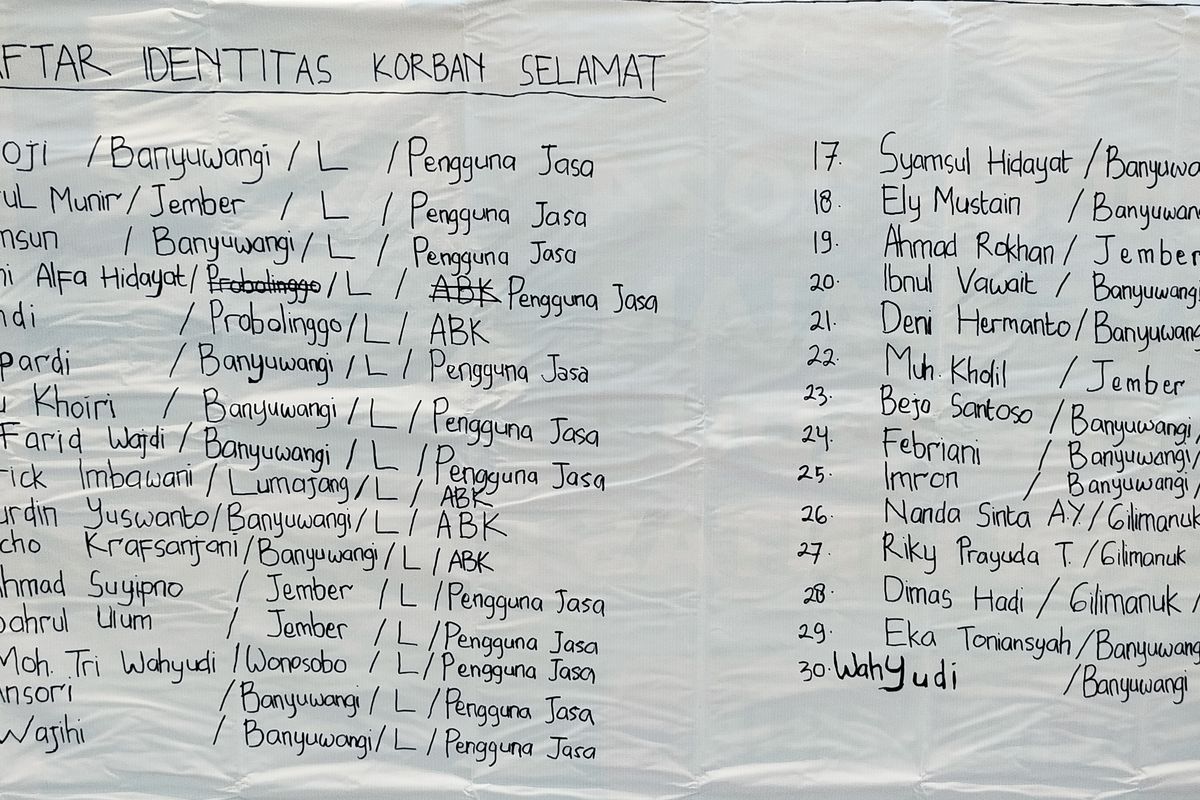 AFTAR IDENTITAS KORBAN SELAMAT
oji / Banyuwangi / L / Pengguna Jasa
ul Munir / Jember / L / Pengguna Jasa
nsun / Banyuwangi / L / Pengguna Jasa
ni Alfa Hidayat / Probolinggo / L / ABK Pengguna Jasa
ndi / Probolinggo / L / ABK
pardi / Banyuwangi / L / Pengguna Jasa
u Khoiri / Banyuwangi / L / Pengguna Jasa
Farid Wajdi / Banyuwangi / L / Pengguna Jasa
rick Imbawani / Lumajang / L / ABK
urdin Yuswanto / Banyuwangi / L / ABK
cho Krafsanjani / Banyuwangi / L / ABK
hmad Suyipno / Jember / L / Pengguna Jasa
ahrul Ulum / Jember / L / Pengguna Jasa
Moh. Tri Wahyudi / Wonosobo / L / Pengguna Jasa
nsori / Banyuwangi / L / Pengguna Jasa
Wajihi / Banyuwangi / L / Pengguna Jasa
17. Syamsul Hidayat / Banyuwa
18. Ely Mustain / Banyuwan
19. Ahmad Rokhan / Jember
20. Ibnul Vawait / Banyuwangi
21. Deni Hermanto / Banyuwang
22. Muh. Kholil / Jember
23. Bejo Santoso / Banyuwangi /
24. Febriani / Banyuwangi /
25. Imron / Banyuwangi /
26. Nanda Sinta A.Y. / Gilimanuk
27. Riky Prayuda T. / Gilimanuk
28. Dimas Hadi / Gilimanuk /
29. Eka Toniansyah / Banyuwang
30. Wahyudi / Banyuwangi